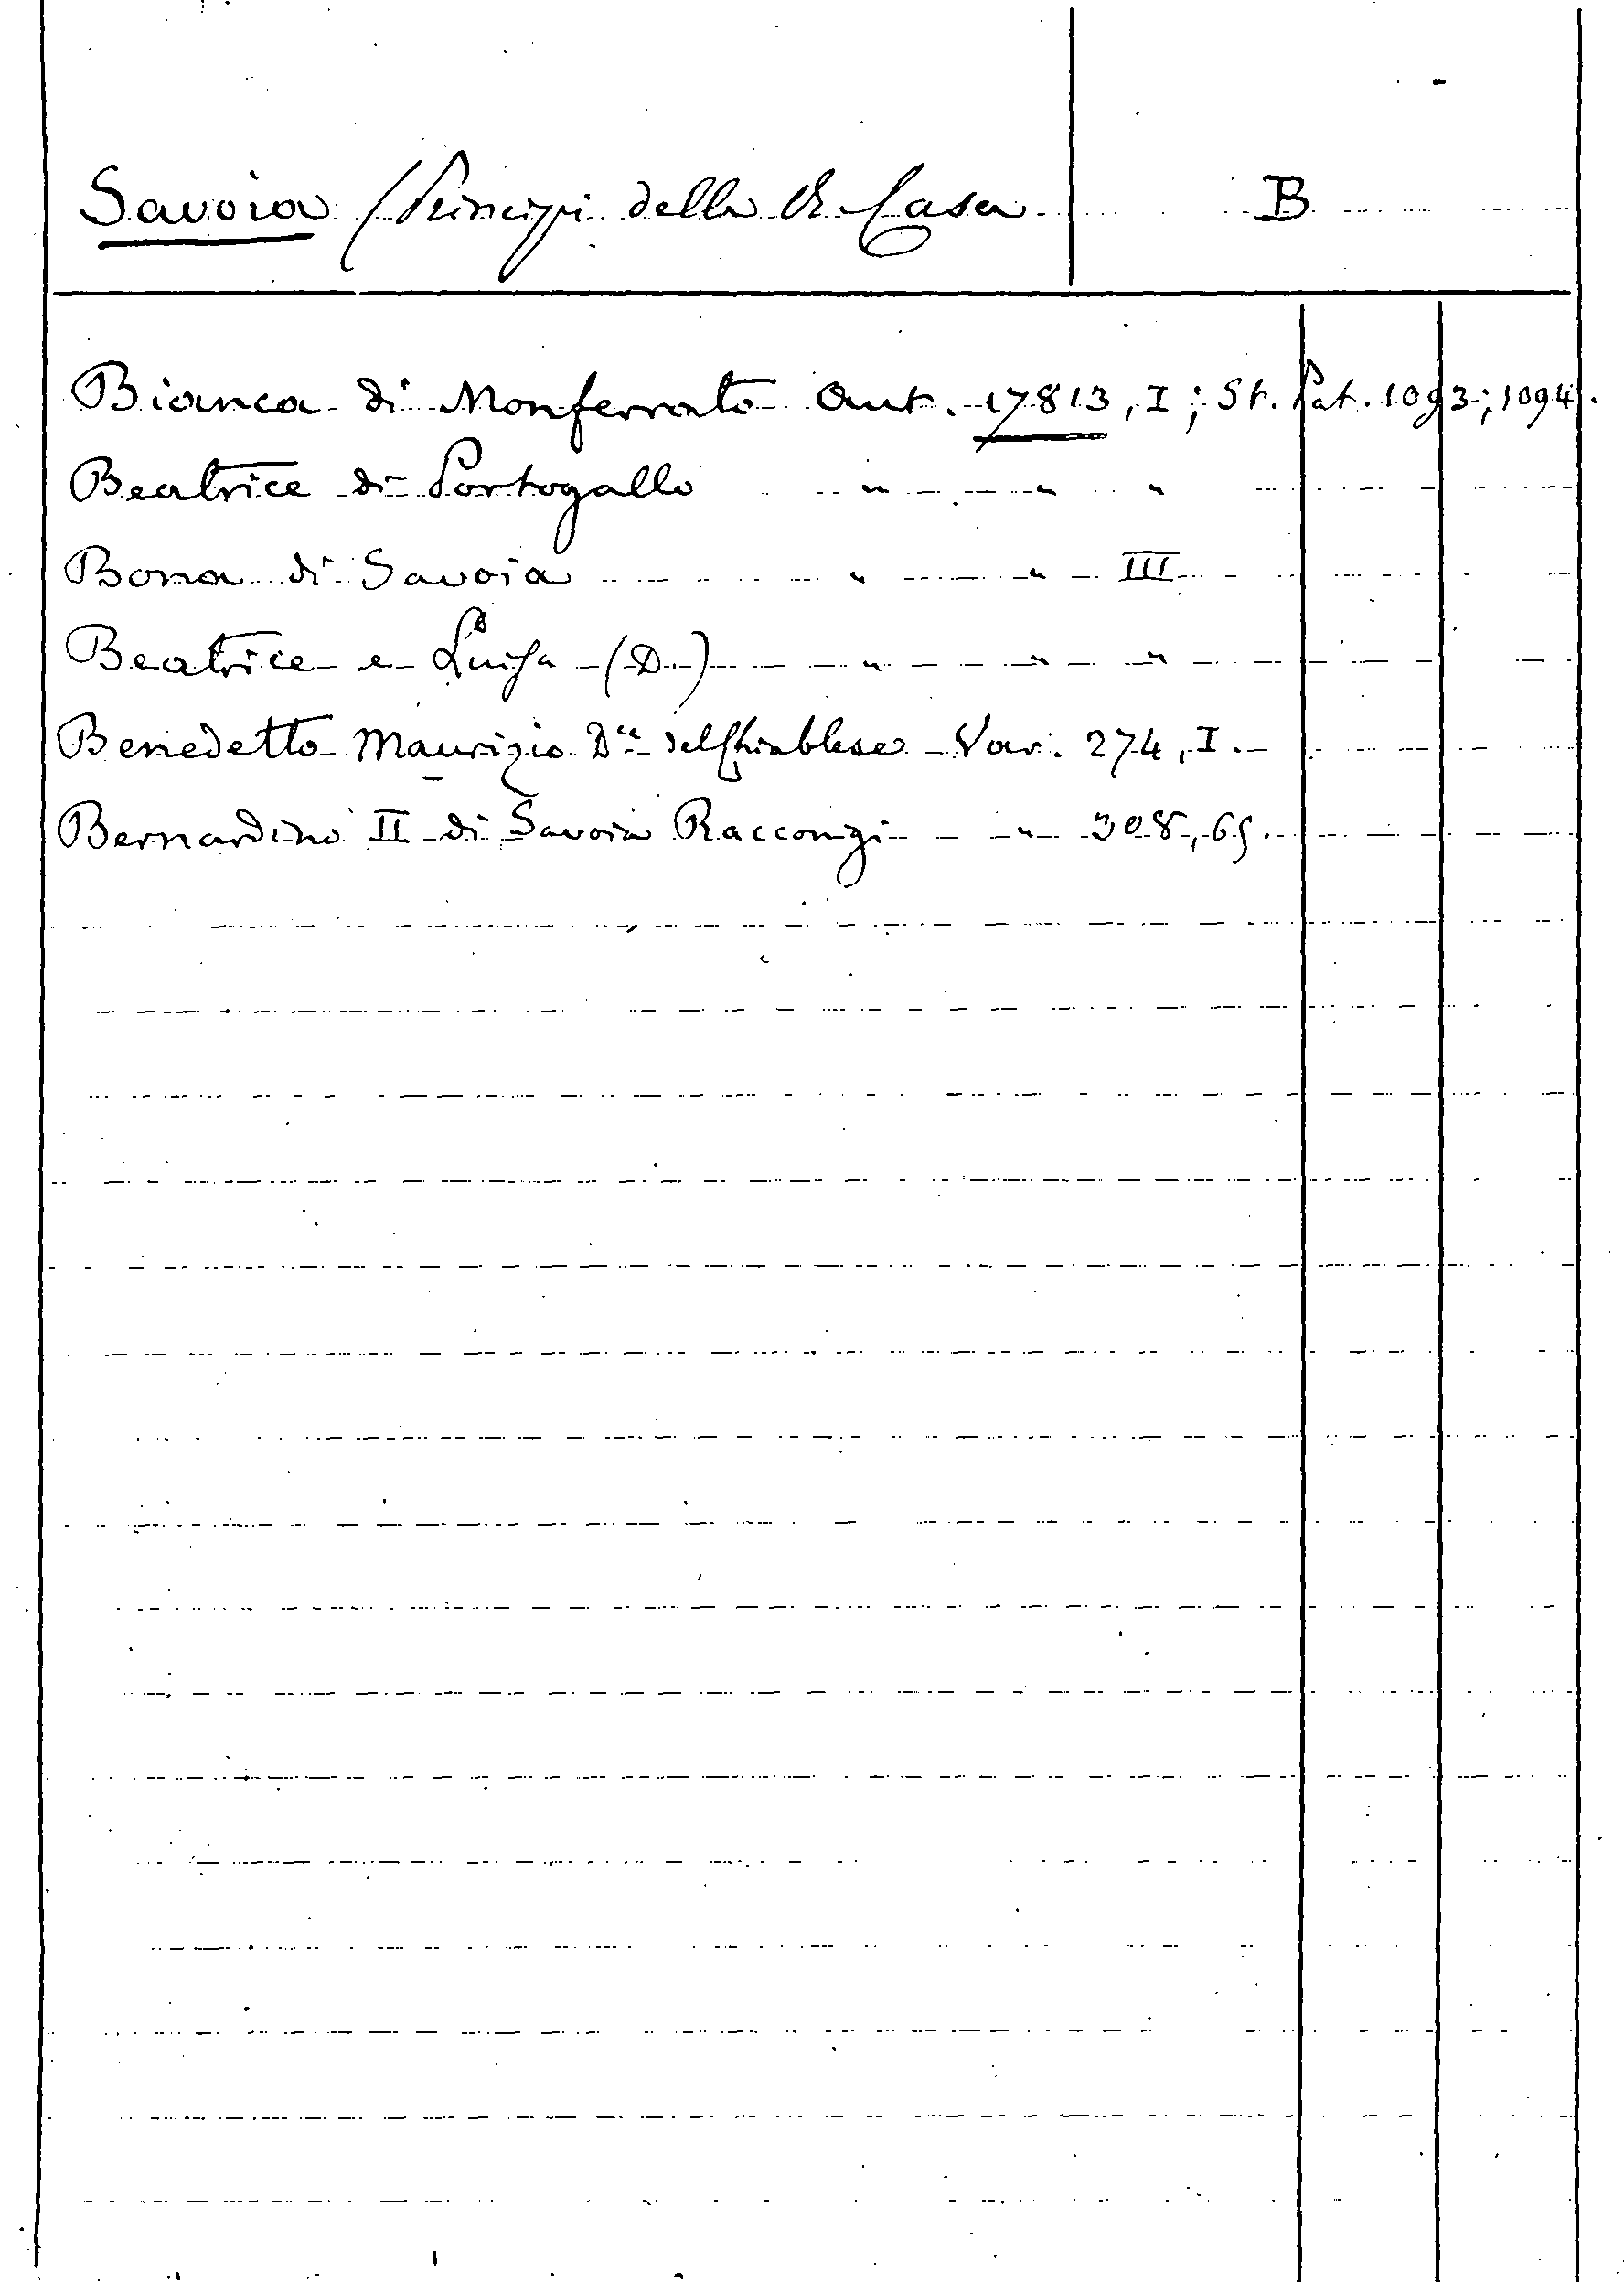 Savoia (Principi della R. Casa B
Bianca di Monferrato Aut. 17813, I; St. Pat. 1093; 1094.
Beatrice di Portogallo " " "
Bona di Savoia " " III
Beatrice e Luisa (D.) " " "
Benedetto Maurizio D.ca del Chiablese Var. 274, I.
Bernardino II di Savoia Racconigi " 308, 65.